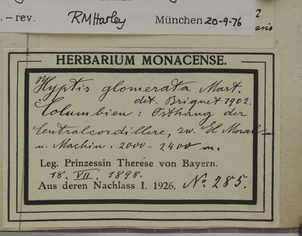 – rev. RMHarley München 20-9-76
HERBARIUM MONACENSE.
Hyptis glomerata Mart.
det. Briquet 1902.
Columbien: Osthang der
Centralcordillere, zw. El Moral
u. Machin. 2000 - 2400 m.
Leg. Prinzessin Therese von Bayern.
18. VII. 1898.
Aus deren Nachlass I. 1926. No. 285.